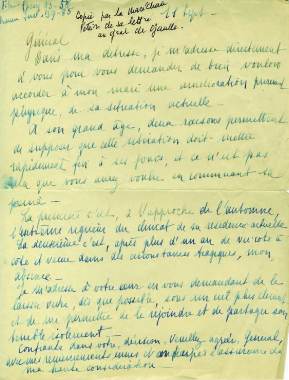 Copie par la Maréchale
Pétain de sa lettre
au gral de Gaulle
21 Sept -
Général
Dans ma détresse, je m'adresse directement
à vous pour vous demander de bien vouloir
accorder à mon mari une amélioration
physique, de sa situation actuelle -
A son grand âge, deux raisons permettent
de supposer que cette situation doit mettre
rapidement fin à ses jours, et ce n'est pas
cela que vous avez voulu en commuant sa
peine -
La première c'est, à l'approche de l'automne,
l'extrême rigueur du climat de sa résidence actuelle
La deuxième c'est, après plus d'un an de vie côte à
côte et vécue dans des circonstances tragiques, mon
absence -
Je m'adresse à votre cœur en vous demandant de le
laisser vivre, dès que possible, sous un ciel plus clément
et de me permettre de le rejoindre et de partager son
isolement -
Confiante dans votre décision, Veuillez agréer, Général,
avec mes remerciements émus l'assurance de
ma haute considération -